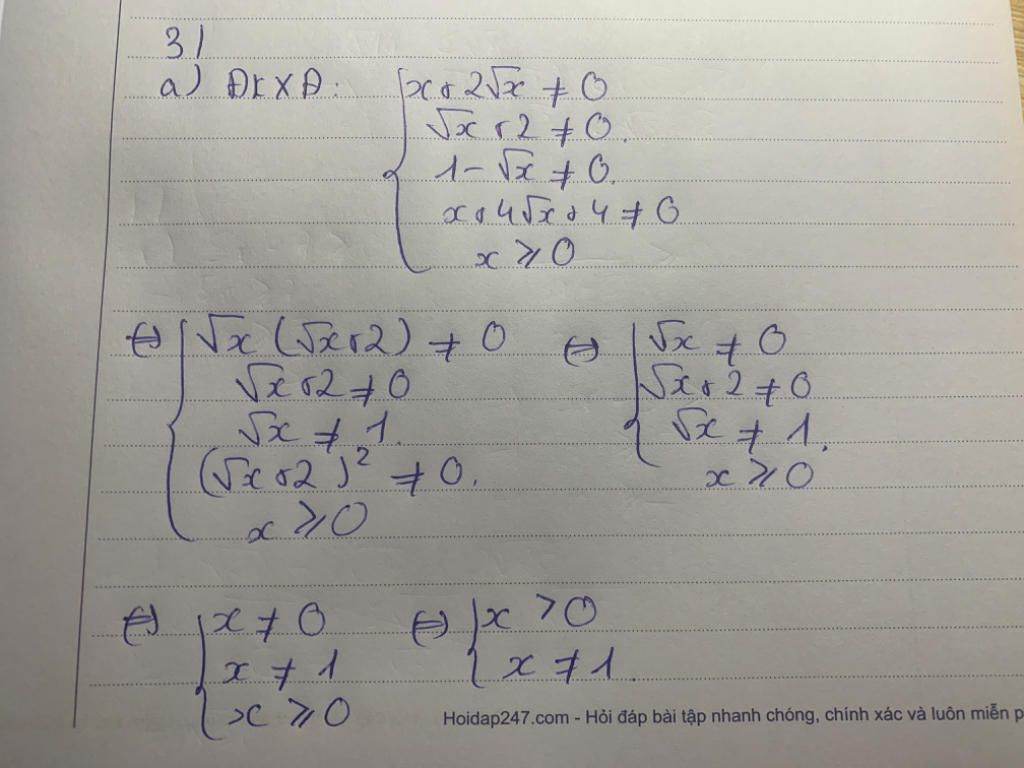 3/
a) ĐKXĐ: x + 2√x ≠ 0
√x + 2 ≠ 0.
1 - √x ≠ 0.
x + 4√x + 4 ≠ 0
x ≥ 0
⇔ √x (√x + 2) ≠ 0
√x + 2 ≠ 0
√x ≠ 1.
(√x + 2)² ≠ 0.
x ≥ 0
⇔ √x ≠ 0
√x + 2 ≠ 0
√x ≠ 1.
x ≥ 0
⇔ x ≠ 0
x ≠ 1
x ≥ 0
⇔ x > 0
x ≠ 1.
Hoidap247.com - Hỏi đáp bài tập nhanh chóng, chính xác và luôn miễn p